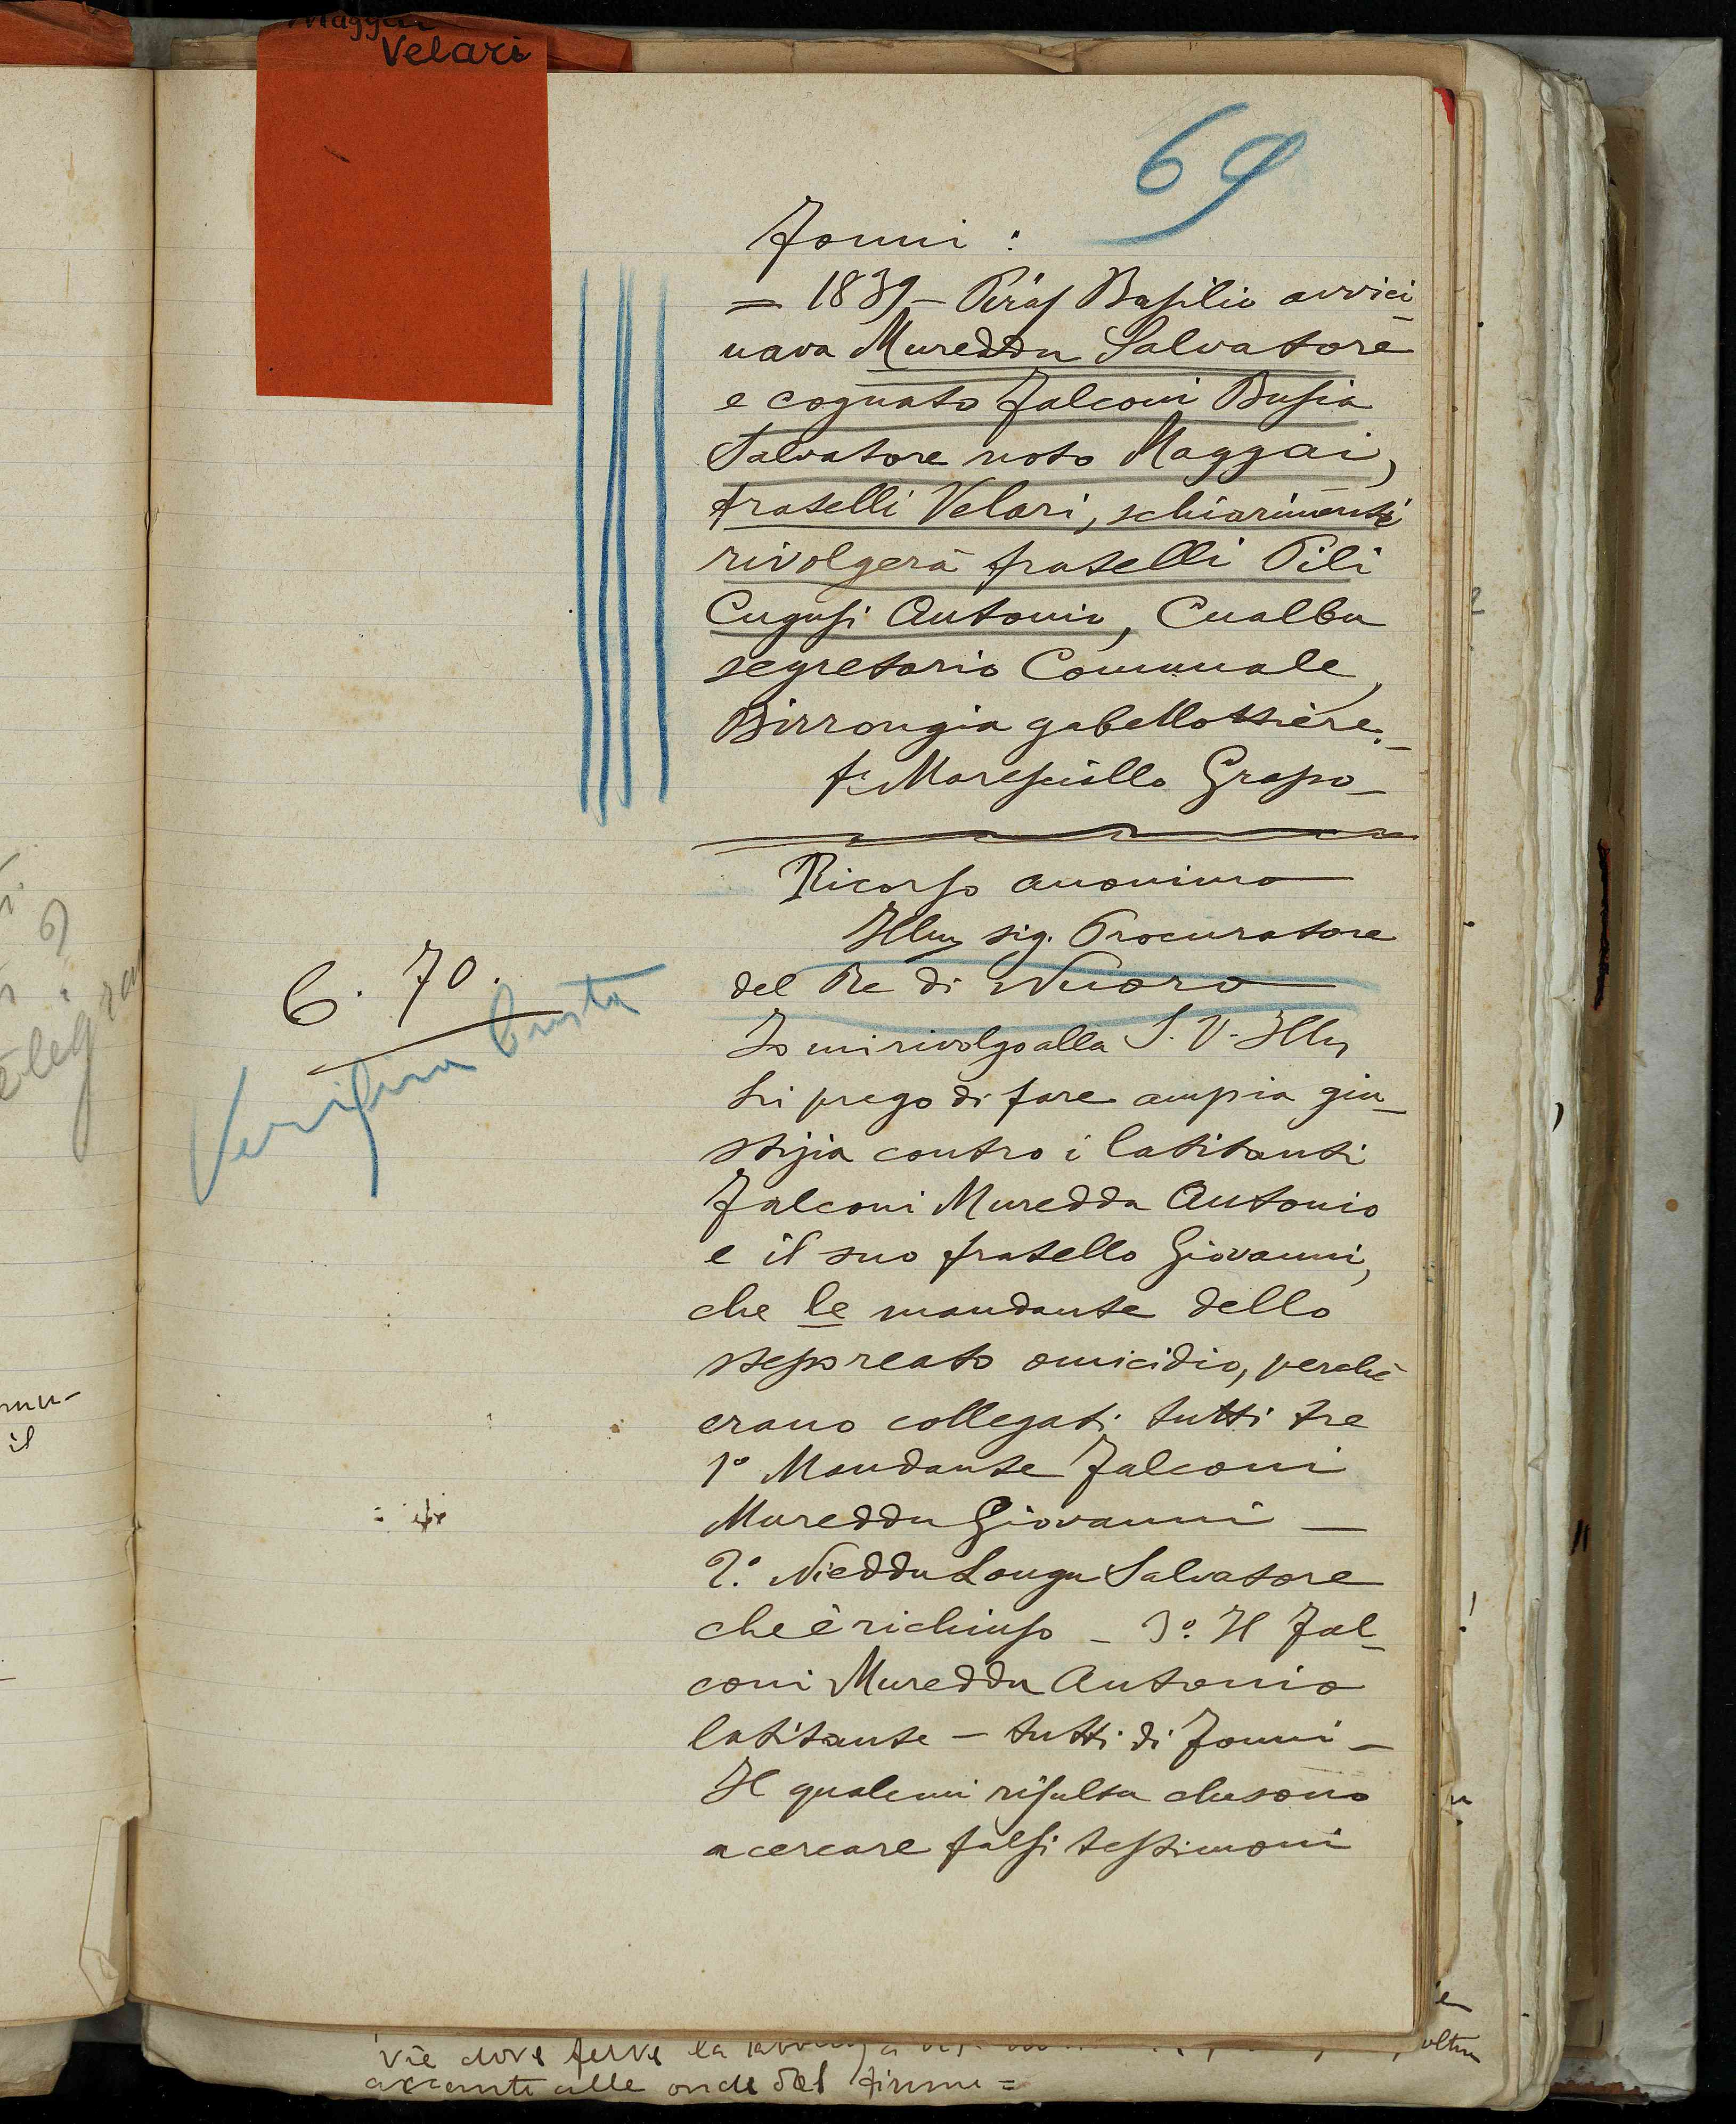 Velari
69
Fonni :
= 1839 - Piras Basilio avvici-
nava Mureddu Salvatore
e cognato Falconi Busia
Salvatore noto Maggai,
fratelli Velari, schiarimenti
rivolgerà fratelli Pili
Cugusi Antonio, Cualbu
segretario Comunale,
Birrongia gabellottiere.-
f. Maresciallo Grasso-
Ricorso anonimo
Illm sig. Procuratore
del Re di Nuoro
6. 70.
Verifica busta
Io mi rivolgo alla S. V. Illm
Li prego di fare ampia giu-
stizia contro i latitanti
Falconi Mureddu Antonio
e il suo fratello Giovanni,
che le mandante dello
stesso reato omicidio, perché
erano collegati tutti tre
1° Mandante Falconi
Mureddu Giovanni -
2.° Nieddu Longu Salvatore
che è richiuso - 3.° Il Fal-
coni Mureddu Antonio
latitante - tutti di Fonni -
Il quale mi risulta che sono
a cercare falsi testimoni
vie dove ferve la
accanto alle onde del fiume =